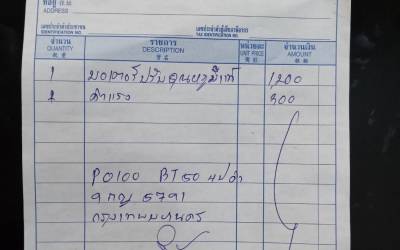 ที่อยู่
ADDRESS
เลขประจำตัวประชาชน
IDENTIFICATION NO.
เลขประจำตัวผู้เสียภาษีอากร
TAX IDENTIFICATION NO.
จำนวน รายการ หน่วยละ จำนวนเงิน
QUANTITY DESCRIPTION UNIT PRICE AMOUNT
1 มอเตอร์ปรับอุณหภูมิแท้ 1,200
1 ค่าแรง 300
PO100 BT50 4ปต
9กญ 5791
กรุงเทพมหานคร